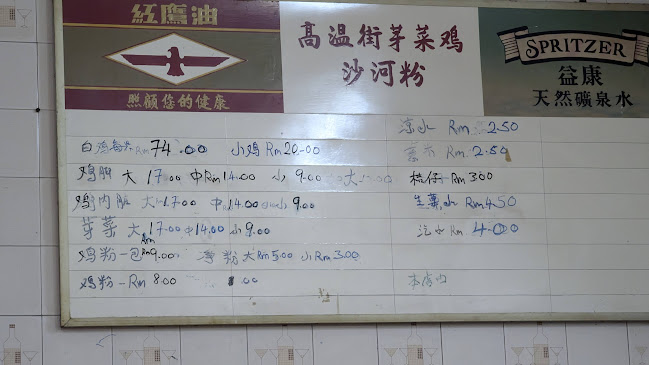 紅鷹油
照顧您的健康
高温街芽菜鸡
沙河粉
SPRITZER
益康
天然礦泉水
白鸡每只 Rm 74.00 小鸡 Rm 20.00
鸡脚 大 17.00 中 Rm 14.00 小 9.00 大
鸡内脏 大 17.00 中 14.00 小 9.00
芽菜 大 Rm 17.00 中 14.00 小 9.00
鸡粉一包 Rm 9.00 净粉 大 Rm 5.00 小 Rm 3.00
鸡粉 - Rm 8.00 .00
凉水 Rm 2.50
Rm 2.50
桔仔 - Rm 3.00
生薏水 Rm 4.50
汽水 Rm 4.00
本店